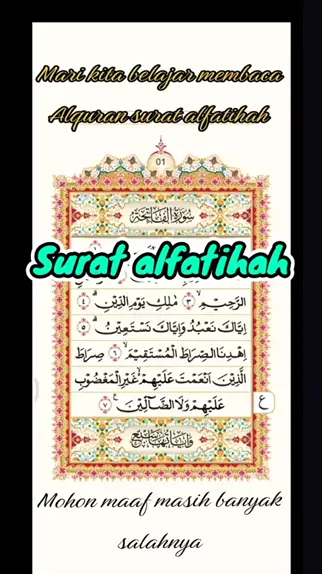 Mari kita belajar membaca
Alquran surat alfatihah
01
سُوْرَةُ الْفَاتِحَةِ
Surat alfatihah
الرَّحِيْمِۙ ٣ مٰلِكِ يَوْمِ الدِّيْنِۗ ٤
اِيَّاكَ نَعْبُدُ وَاِيَّاكَ نَسْتَعِيْنُۗ ٥
اِهْدِنَا الصِّرَاطَ الْمُسْتَقِيْمَۙ ٦ صِرَاطَ
الَّذِيْنَ اَنْعَمْتَ عَلَيْهِمْ ەۙ غَيْرِ الْمَغْضُوْبِ
عَلَيْهِمْ وَلَا الضَّاۤلِّيْنَ ࣖ ٧
ع
Mohon maaf masih banyak
salahnya